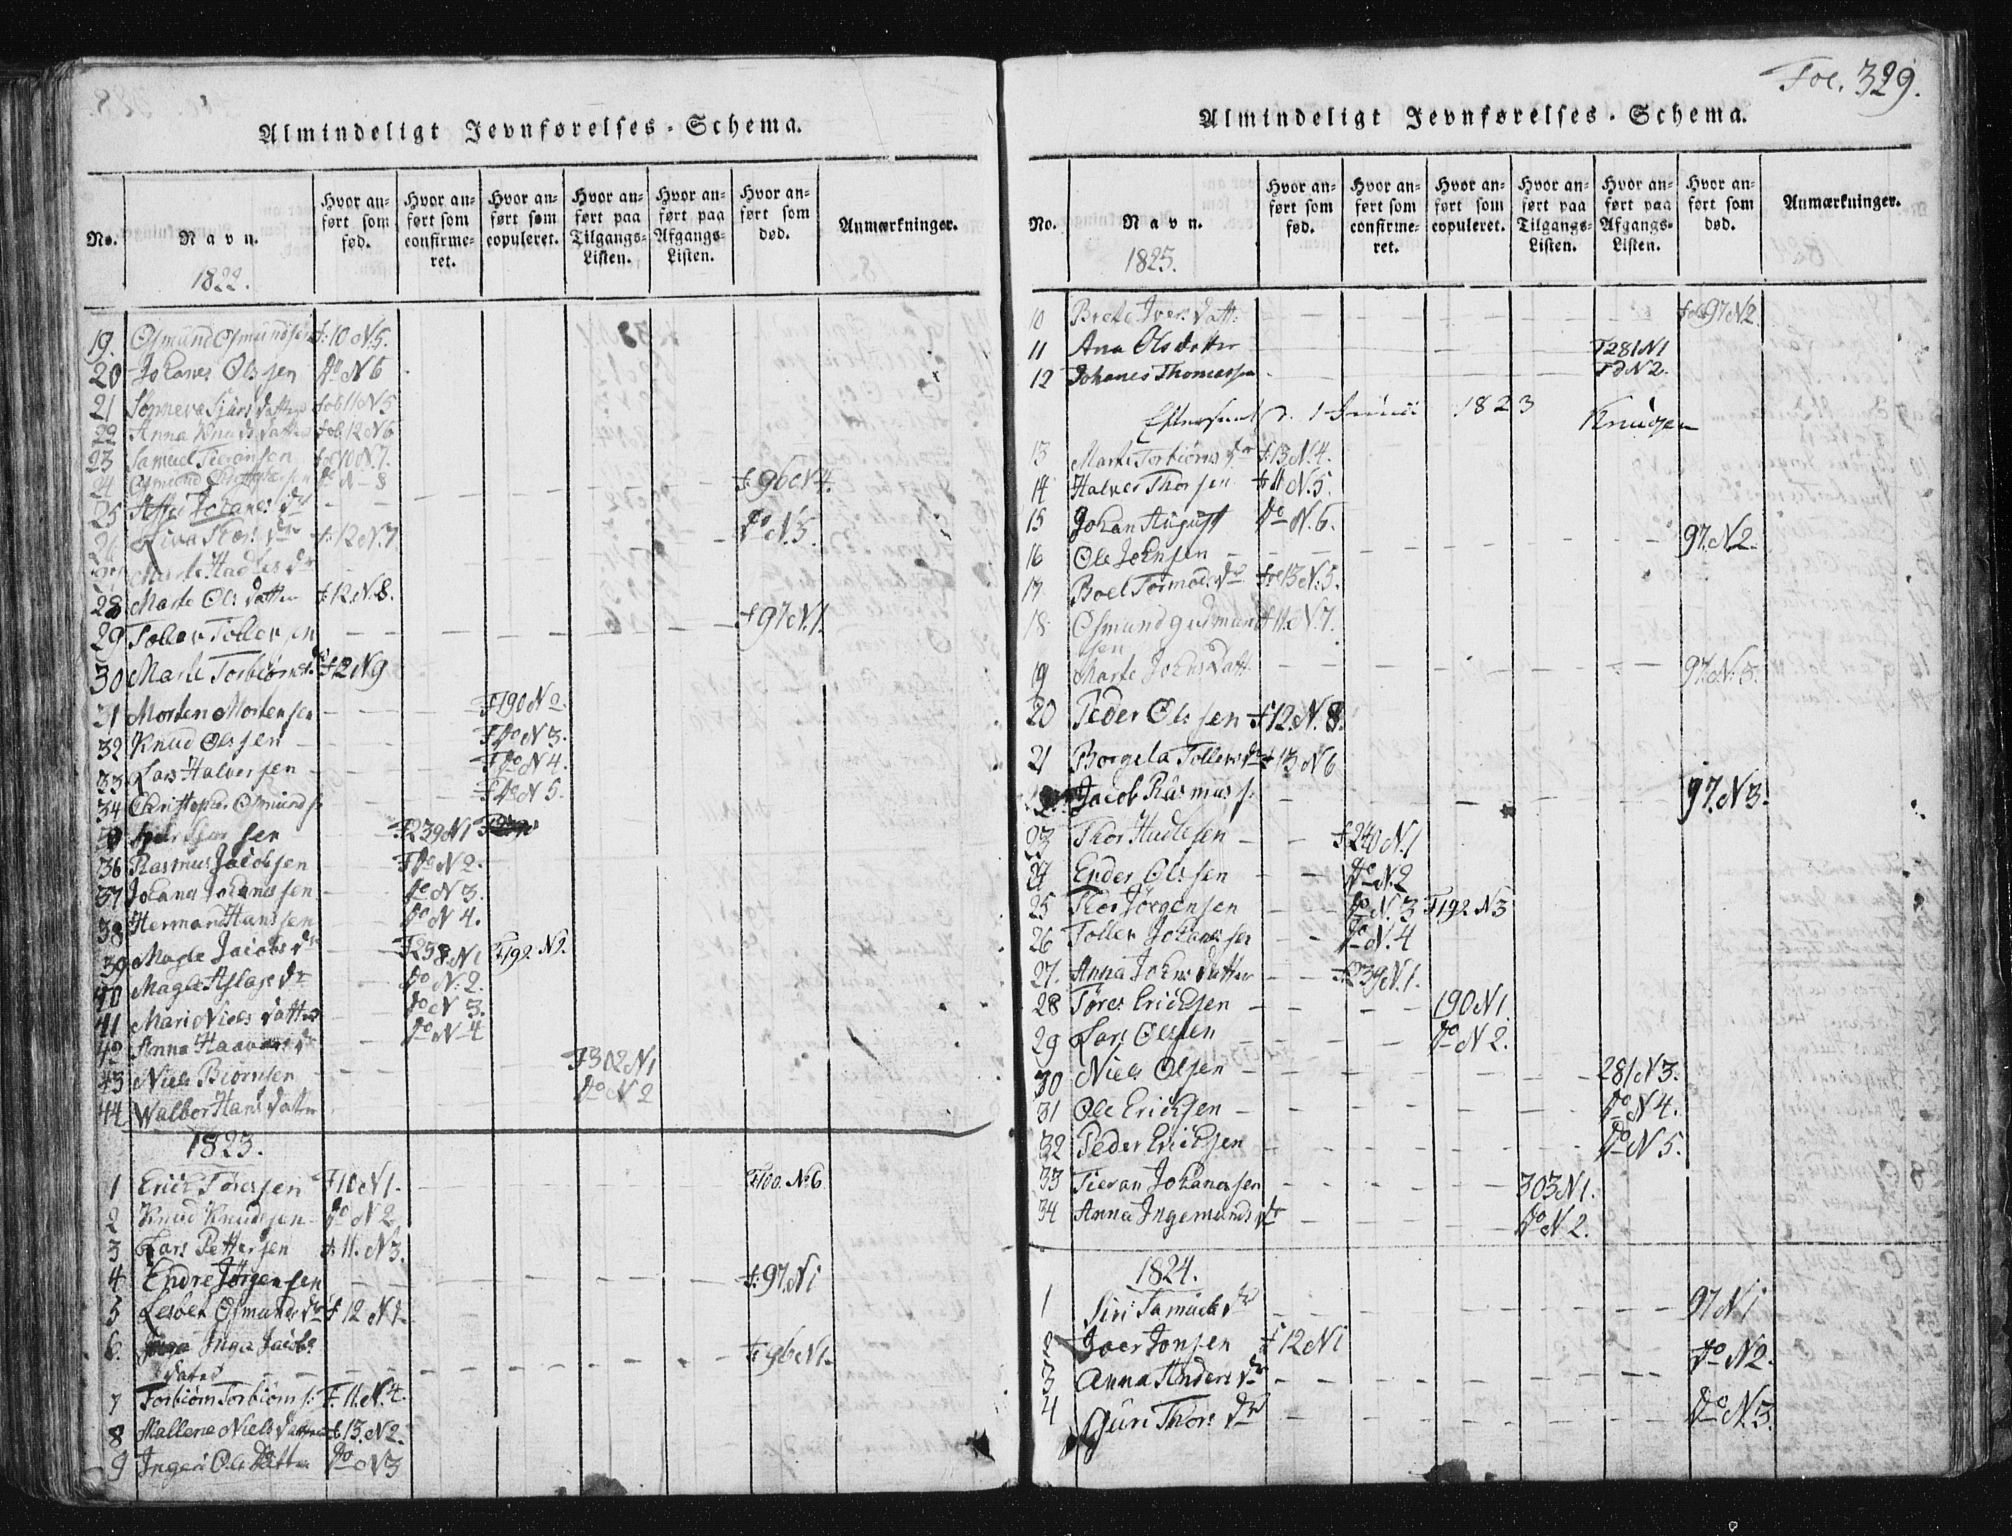 Almindeligt Jevnførelses-Schema.
No. Navn. Hvor anført som fød. Hvor anført som confirmeret. Hvor anført som copuleret. Hvor anført paa Tilgangs-Listen. Hvor anført paa Afgangs-Listen. Hvor anført som død. Anmærkninger.
1822.
19. Osmund Osmundsen f:10 N.5.
20 Johanes Olssen do N 6
21 Sønneva Sjurs datter fol 11 N 5
22 Anna Knuds datter fol 12 N 6
23 Samuel Tieransen fol 10 N.7.
24 Osmund do N - 8
25 Johanes dr f 96 N 4.
26 dr f:12 N.7
27 Marte dr do N.5.
28 Marte Ols datter f 12 N.8.
29 Toller Tollersen f 97 N.1.
30 Marte Torbiørns dr f12 N 9
31 Morten Mortensen F190 N
32 Knud Olssen F do N 3.
33 Lars Halversen F do N 4.
34 Christopher Osmunds: F do N 5.
sen F239 N 1
36 Rasmus Jacobsen F do N 2.
37 Johanes Johanessen do N 3.
38 Herman Hanssen do N 4.
39 Magle Jacobs dr F238 N 1 F192 N2.
40 Magle Aslags dr do N: 2.
41 Mari Niels datter do N 3.
42 Anna dr do N 4
43 Niels Biørnsen F302 N 1
44 Walbor Hans datter do N 2
1823.
1 Erick Toressen F10 N 1. F100. No 6.
2 Knud Knudssen do N 2
3 Lars Pettersen f 11. N 3.
4 Endre Jørgensen f:97. N 1
5 Lesbet Osmunds dr f 12 N 1.
6. Inga Jacobs F:96 N 1.
datter
7 Torbiørn Torbiørns: F. 11. N. 4.
8 Mallene Niels datter f 13. N 2.
9 Inger Ols datter do N 3
Fol. 329.
Almindeligt Jevnførelses-Schema.
No. Navn. Hvor anført som fød. Hvor anført som confirmeret. Hvor anført som copuleret. Hvor anført paa Tilgangs-Listen. Hvor anført paa Afgangs-Listen. Hvor anført som død. Anmærkninger.
1825.
10 Brete Ivers datt: fol 97 N 2
11 Ana Olsdatter F281 N 1
12 Johanes Thomassen F do N 2.
Efterseet d. 1 Junii 1823 Knudsen
13 Marte Torbiørns dr f:13 N. 4.
14 Halver Thorsen f 11 N. 5.
15 Johan August do N. 6.
16 Ole Johnsen 97. N. 2.
17 Boel Tormods dr fol 13 N. 5.
18 Osmund Gudmund f 11. N. 7.
sen
19 Marte Johns datt: 97. N. 3.
20 Peder Olssen f 12 N. 8.
21 Borgela Tollers dr f 13 N 6
Jacob Rasmuss: 97. N 3.
23 Thor Hadlesen f 240 N. 1
24 Ender Olssen do N 2
25 Thor Jørgensen do N. 3 F192 N3
26 Toller Johanessen do N. 4
27. Anna Johns datter f 239 N. 1.
28 Tøres Ericksen 190 N 1.
29 Lars Olssen do N 2.
30 Niels Olsen 281 N 3.
31 Ole Ericksen do N 4.
32 Peder Ericksen do N 5.
33 Tieran Johanessen 303 N 1.
34 Anna Ingemunds dr do N 2.
1824.
1 Siri Samuels dr 97 N 1
2 Iver Jonsen f 12 N 1
3 Anna Anders dr do N 2.
4 Guri Thors dr do N. 3